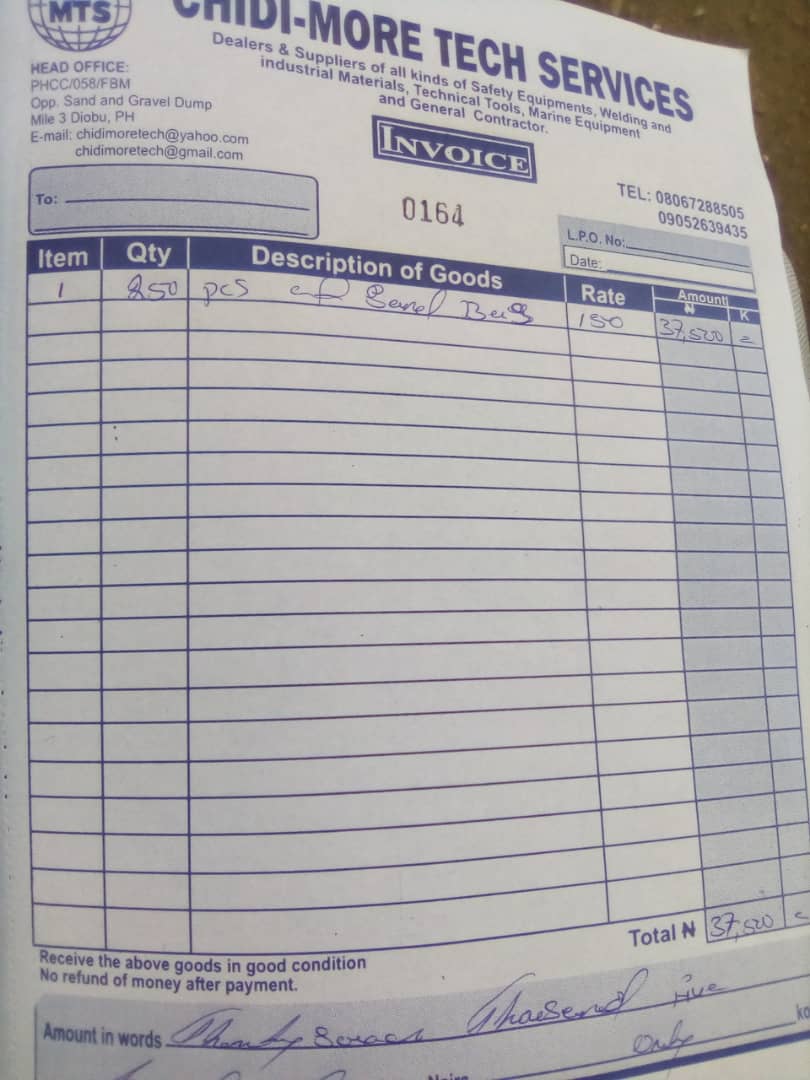 MTS
CHIDI-MORE TECH SERVICES
Dealers & Suppliers of all kinds of Safety Equipments, Welding and
industrial Materials, Technical Tools, Marine Equipment
and General Contractor.
HEAD OFFICE:
PHCC/058/FBM
Opp. Sand and Gravel Dump
Mile 3 Diobu, PH
E-mail: chidimoretech@yahoo.com
chidimoretech@gmail.com
INVOICE
TEL: 08067288505
09052639435
To:
0164
L.P.O. No:
Date:
Item Qty Description of Goods Rate Amount
₦ K
1 250 pcs of Sand Bags 150 37,500 =
Total ₦ 37,500 =
Receive the above goods in good condition
No refund of money after payment.
Amount in words Thousand Five
Only
Naira